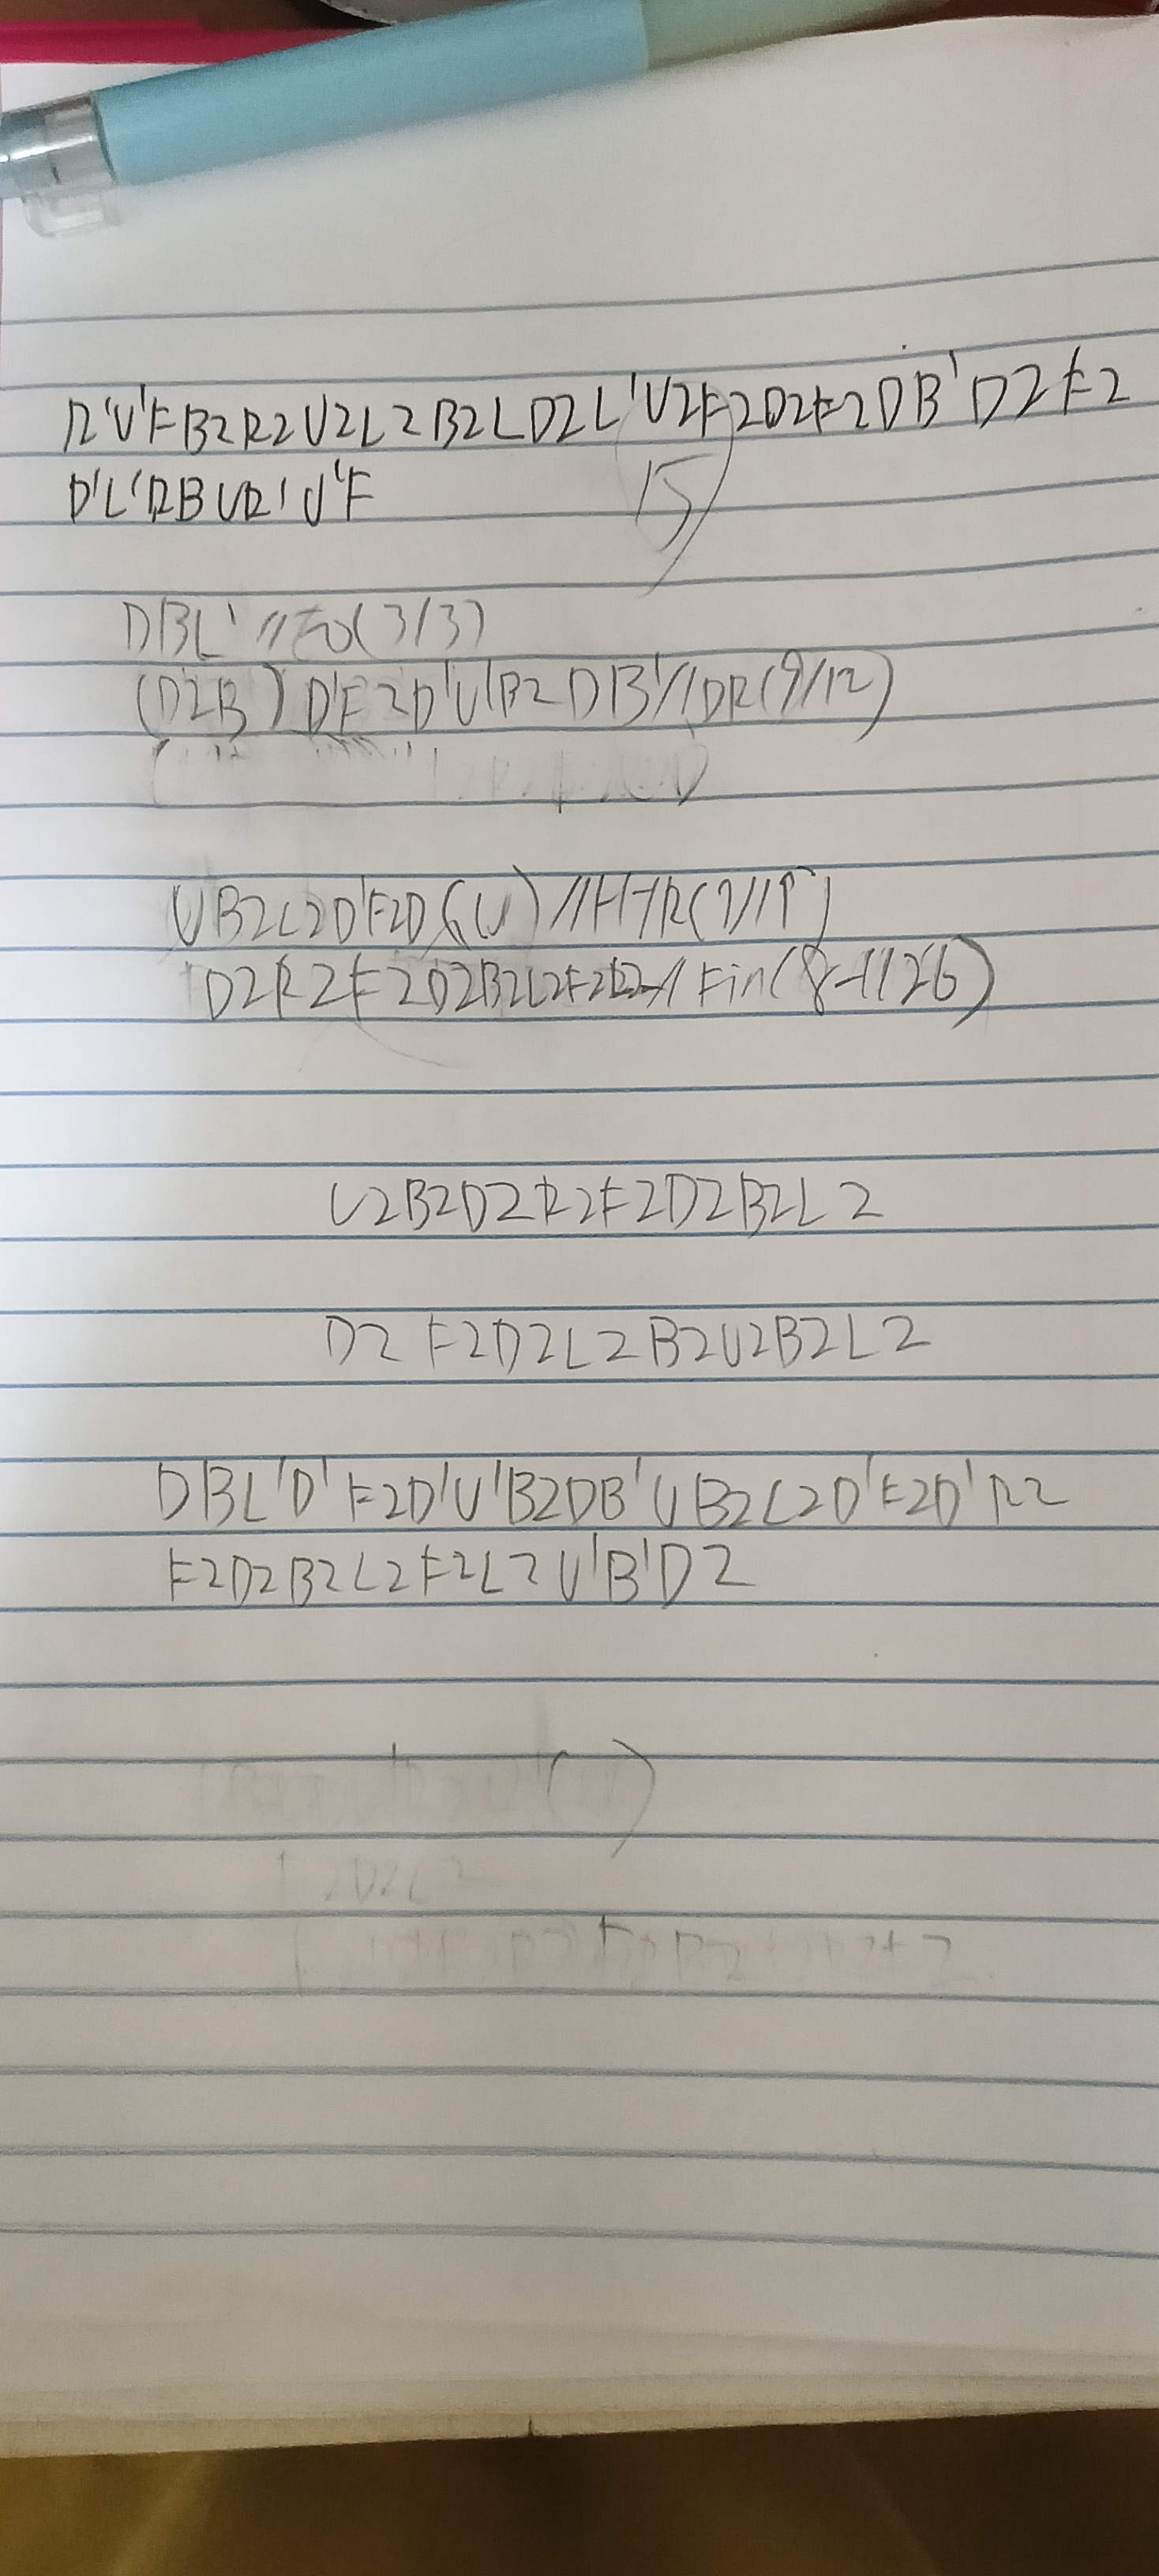 R'U'FB2R2U2L2B2LD2L'U2F2D2F2DB'D2F2
D'L'RBUR'U'F
15
DBL' //EO(3/3)
(D2B) D'F2D'U'B2DB' //DR(9/12)
UB2L2D'F2D(U) //HTR(7/19)
D2R2F2D2B2L2F2L2 //Fin(8-1/26)
U2B2D2R2F2D2B2L2
D2F2D2L2B2U2B2L2
DBL'D'F2D'U'B2DB'UB2L2D'F2D'R2
F2D2B2L2F2L2U'B'D2